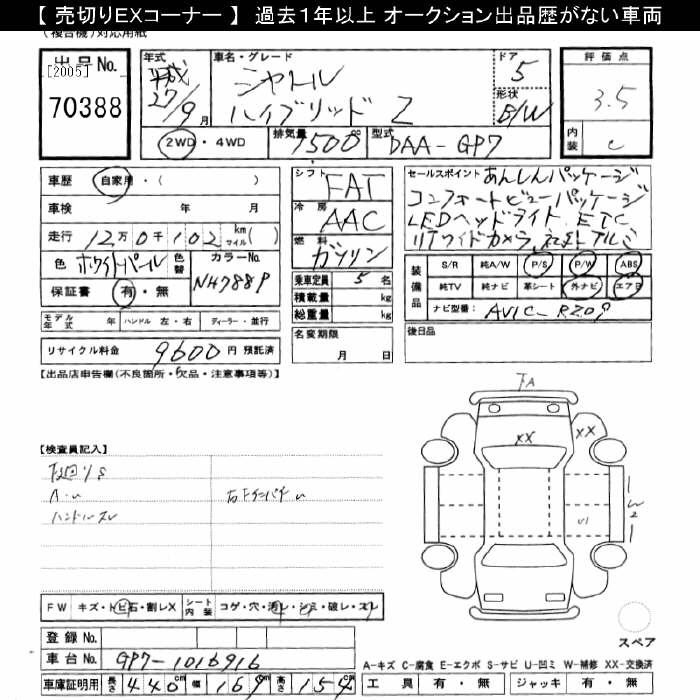 【 売切りEXコーナー 】 過去1年以上 オークション出品歴がない車両
(複合機)対応用紙
出品No.
[2005]
70388
年式
平成
27/9月
車名・グレード
シャトル
ハイブリッド Z
ドア
5
形状
B/W
評価点
3.5
内装
C
2WD・4WD
排気量
1500cc
型式
DAA-GP7
車歴 自家用・( )
車検 年 月
走行 12万0千102 km マイル( )
色 ホワイトパール
色替
カラーNo.
NH788P
保証書 有・無
モデル年式 年 ハンドル 左・右 ディーラー・並行
リサイクル料金 9600円 預託済
シフト
FAT
冷房
AAC
燃料
ガソリン
乗車定員 5名
積載量 kg
総重量 kg
名変期限
月 日
セールスポイント あんしんパッケージ
コンフォートビューパッケージ
LEDヘッドライト ETC
リアワイドカメラ 社外アルミ
装備品
S/R 純A/W P/S P/W ABS
純TV 純ナビ 革シート 外ナビ エアB
ナビ型番: AVIC-RZ09
後日品
【出品店申告欄(不良箇所・欠品・注意事項等)】
【検査員記入】
下廻りS
ハンドルスレ
FA
XX
XX
U1
W2
FW キズ・トビ石・割レX シート内装 コゲ・穴・汚レ・シミ・破レ・スレ
登録No.
車台No. GP7-1016916
車庫証明用 長さ 440cm 幅 169cm 高さ 154cm
スペア
A-キズ C-腐食 E-エクボ S-サビ U-凹ミ W-補修 XX-交換済
工具 有・無 ジャッキ 有・無